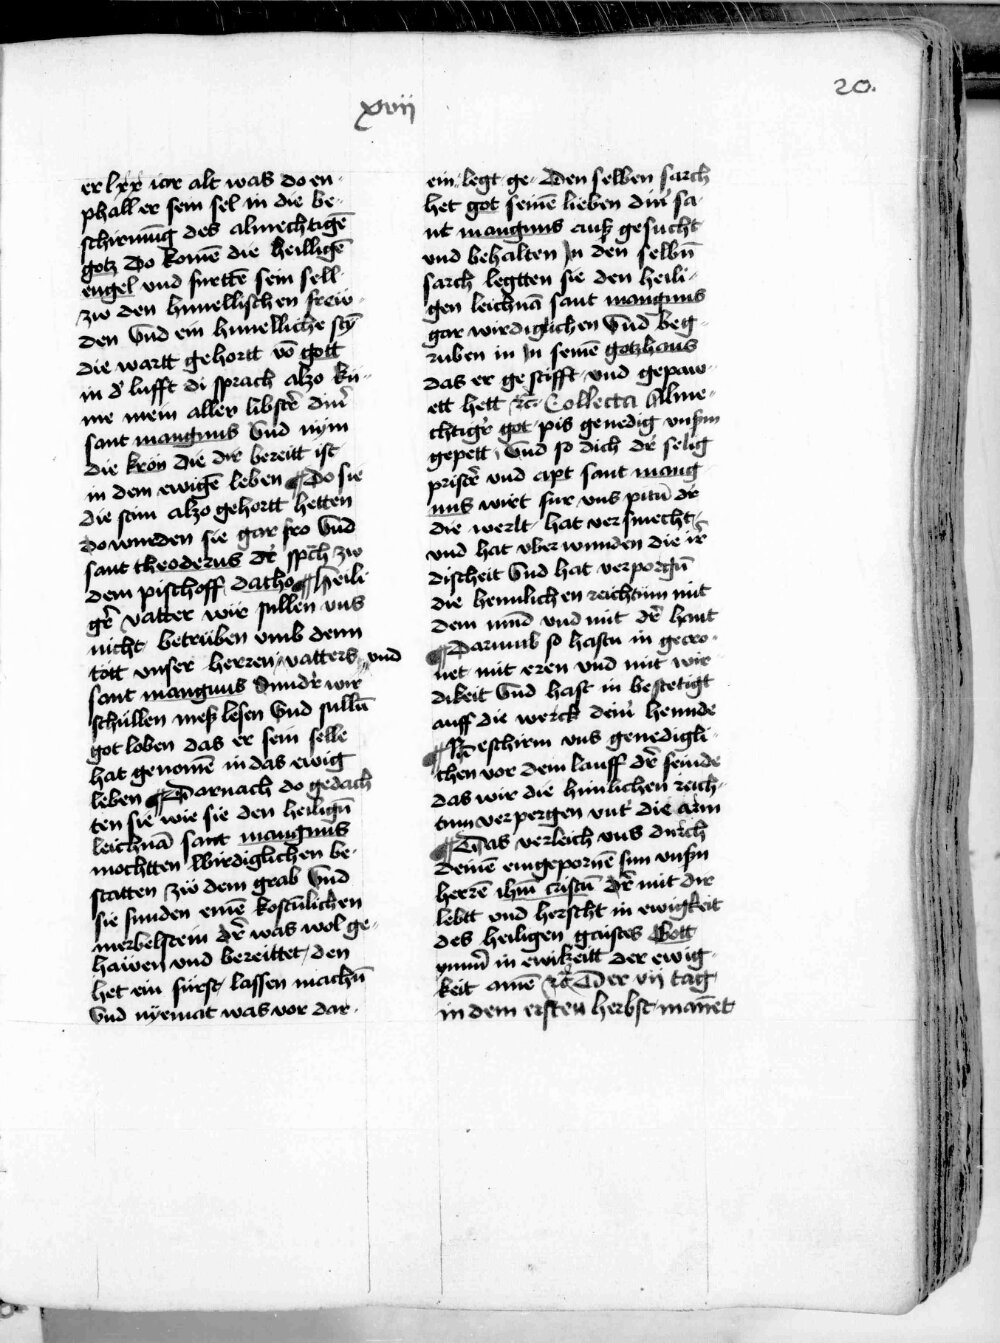 20.
xvii
er lxx iar alt was do en-
phall er sein sel in die be-
schirmūg des almechtigē
gotz Do komē die heilligē
engel vnd furttē sein sell
zw den himellischen freẅ-
den Vnd ein himelliche sty̅
die wartt gehortt vō gott
in d' lufft di sprach alzo kü-
me mein aller libstr̄ dinr̄
sant mangnus Vnd nym
die kron die dir bereitt ist
in dem ewigē leben ¶ Do sie
die stim alzo gehortt hetten
do wurden sie gar fro Vnd
sant theoderus der̄ sp̄ch zw
dem pischoff datho ¶ Heili
gr̄ vatter wir sullen vns
nicht betrüben vmb denn
tott vnser herren vatters vnd
sant mangnus Sundr̄ wir
schüllen meß lesen Vnd sullū
got loben das er sein selle
hat genomē in das ewig
leben ¶ Darnach do gedach
ten sie wie sie den heiligū
leichnā sant mangnus
mochtten wirdiglichen be-
statten zw dem grab Vnd
sie funden einē kostūlichen
merbelstein dr̄ was wol ge-
haüen vnd bereittet den
het ein fürst lassen machū
Vnd nyemat was vor dar-
ein legt ge- Den selben sarch
het got seinē lieben din̄ sa-
nt mangnus auß gesucht
vnd behalten Jn den selbū
sarch legtten sie den heili-
gen leichnā sant mangnus
gar wirdiglichen Vnd beg-
ruben in Jn seinē gotzhaus
das er gestifft vnd gepaw-
ett hett ꝛc̄ Collecta Alme-
chtigr̄ got pis genedig vnsm̄
gepett Vnd so dich dr̄ selig
pristr̄ vnd apt sant mang
nus wirt fur vns pitū dr̄
die werlt hat versmecht
vnd hat vber wunden die ir̄
discheit Vnd hat verporgū
die heimlichen reichtum mit
dem mūd vnd mit dr̄ hant
¶ Darumb so hastu in gecro-
net mit eren vnd mit wir-
dikeit Vnd hast in bestetigt
auff die werck dein̄ hennde
¶ Beschirm vns genedigli-
chen vor dem lauff dr̄ feinde
das wir die himlichen reich-
tum verpergen vnt̄ die arm
¶ Das verleich vns durch
deinē eingepornē sun vnsm̄
herrē ihm̄ cristū dr̄ mit dir
lebtt vnd herscht in ewigkeit
des heiligen gaistes Gott
ymm̄ in ewikeitt der ewig-
keit amē ꝛc̄ Der vij tag
in dem ersten herbst manet